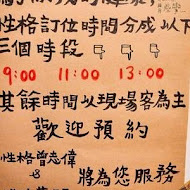 性格訂位時間分成以下
三個時段
9:00 11:00 13:00
其餘時間以現場客為主
歡迎預約
性格曾志偉
&
將為您服務